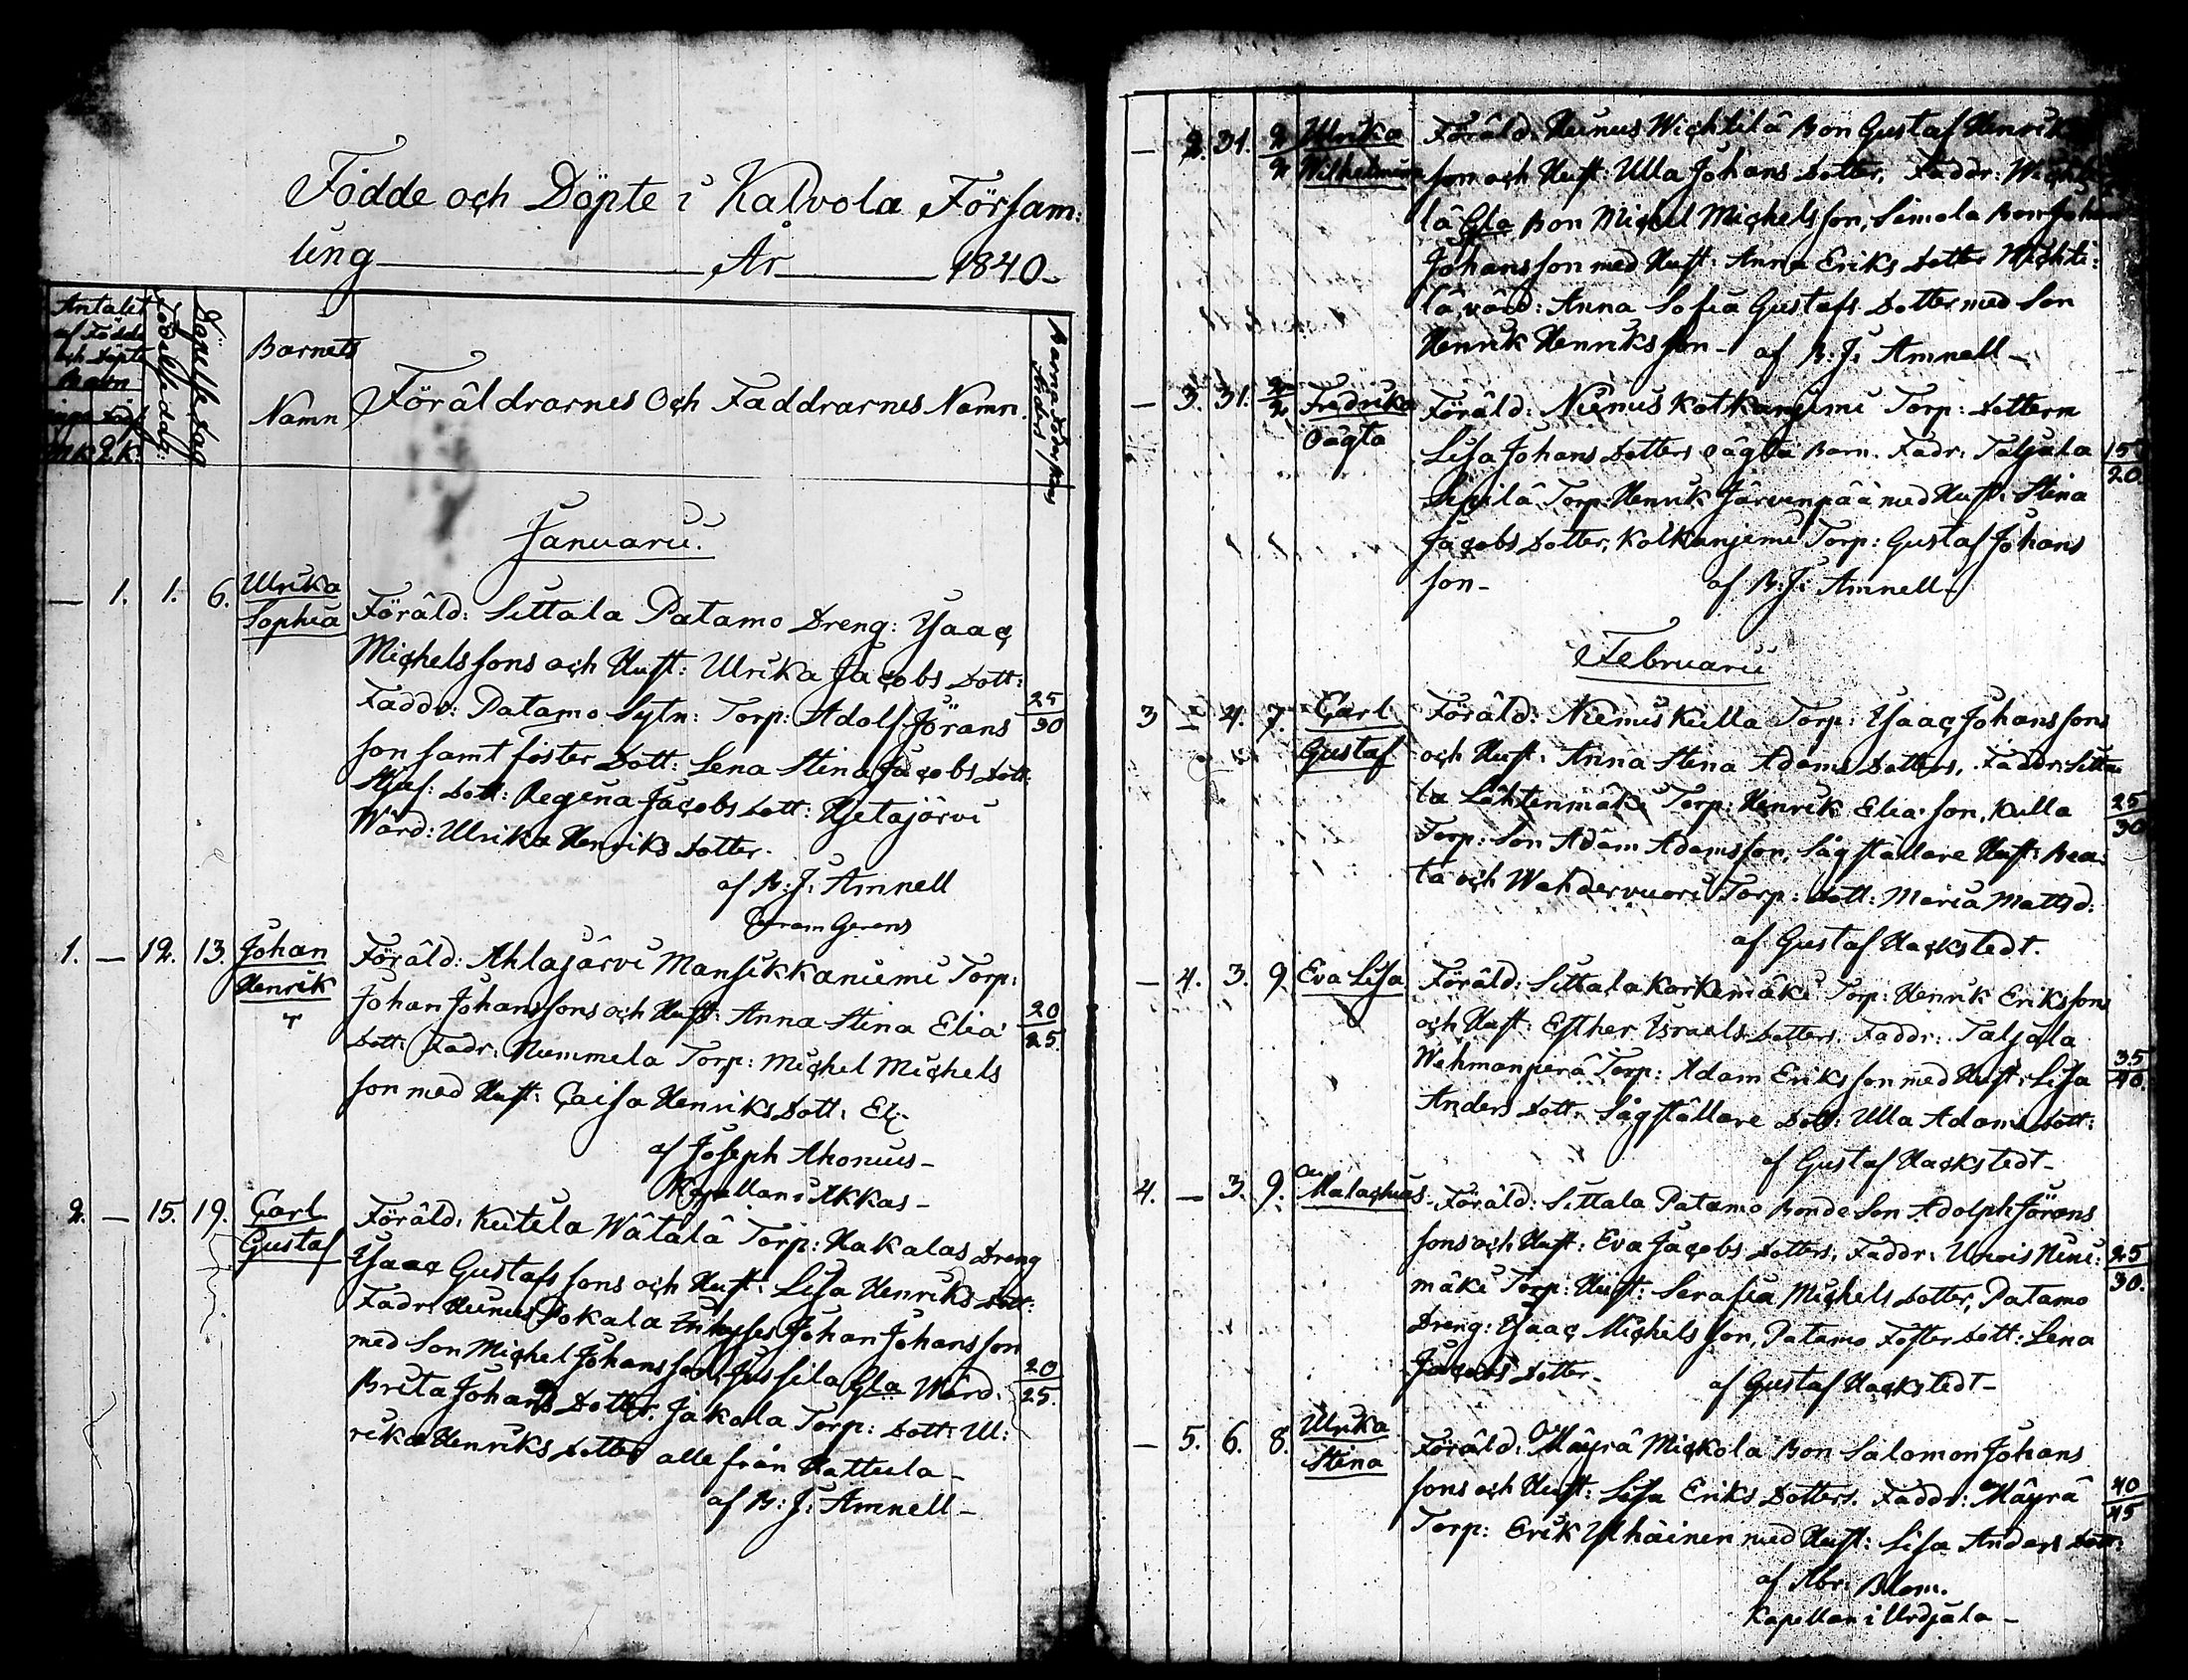 Födde och Döpte i Kalvola Församː
ling År 1840
Antalet
af Födde
och Döpte
Barn
M.K. Q.K.
Födelse dag
Döpelse Dag
Barnets
Namn
Föräldrarnes Och Faddrarnes Namn.
Barna
Ålder
Januarii.
— 1. 1. 6. Ulrika
Sophia
Föräld: Sittala Patamo Dreng: Isaac
Michelssons och Hust: Ulrika Jacobs Dott:
Faddr: Patamo Sytn: Torp: Adolf Jörans
son samt foster Dott: Lena Stina Jacobs Dott:
Dott: Regina Jacobs Dott: Hietajärvi
Wärd: Ulrika Henriks Dotter.
25
30
af B: J: Amnell
1. — 12. 13. Johan
Henrik
Föräld: Ahlajärvi Mansikkaniemi Torp:
Johan Johanssons och Hust: Anna Stina Elia
Dott: Fadr: Nummela Torp: Michel Michels
son med Hust: Caisa Henriks Dott: Ei
20
25.
af Joseph Ahonius —
Kapellan i Akkas —
2. — 15. 19. Carl
Gustaf
Föräld: Kutila Wätälä Torp: Hakalas Dreng
Isaac Gustafs sons och Hust: Lisa Henriks Dott:
Fadr: Heinus Pokala Johan Johansson
med Son Michel Johansson, Jussila Gla Wärd:
Brita Johans Dotter. Jakala Torp: Dott: Ulː
rika Henriks Dotter alle från Hattula —
20
25.
af B: J: Amnell —
— 2. 31. 2/2 Ulrika
Wilhelmina
Föräld: Heinus Wichtilä Bon Gustaf Henriks
son och Hust: Ulla Johans Dotter, Faddr: Wichti
lä Gla Bon Michel Michelsson, Simola Bon Johan
Johansson med Hust: Anna Eriks Dotter Wichtiː
lä värd: Anna Sofia Gustafs Dotter med Son
Henrik Henriksson — af B: J: Amnell —
— 3. 31. 2/2 Fredrika
Oägta
Föräld: Niemis Kotkaniemi Torp: Dottern
Lisa Johans Dotters oägta Barn. Fadr: Taljala
Sipilä Torp: Henrik Järvenpää med Hust: Stina
Jacobs Dotter, Kotkaniemi Torp: Gustaf Johans
son — af B: J: Amnell —
15
20.
Februarii
3 — 4. 7. Carl
Gustaf
Föräld: Niemis Kulla Torp: Isaac Johanssons
och Hust: Anna Stina Adams Dotters, Faddr: Sitta
la Lähtenmäki Torp: Henrik Elia son, Kulla
Torp: Son Adam Adamsson, Sågställare Hust: Beaː
ta och Wahdervuori Torp: Dott: Maria Mattsd:
25
30
af Gustaf Hackstedt.
— 4. 3. 9. Eva Lisa
Föräld: Sittala Korkemäki Torp: Henrik Erikssons
och Hust: Esther Israels Dotters. Faddr: Taljala
Wehmanperä Torp: Adam Eriksson med Hust: Lisa
Anders Dott: Sågställare Dott: Ulla Adams Dott:
35
40.
af Gustaf Hackstedt —
4. — 3. 9. Malachias
Föräld: Sittala Patamo Bonde Son Adolph Jörans
sons och Hust: Eva Jacobs Dotters, Faddr:
mäki Torp: Hust: Serafia Michels Dotter, Patamo
Dreng: Isaac Michelsson, Patamo Foster Dott: Lena
Jacobs Dotter. af Gustaf Hackstedt —
25
30.
— 5. 6. 8. Ulrika
Stina
Föräld: Mäyrä Mickola Bon Salomon Johans
sons och Hust: Lisa Eriks Dotters. Faddr: Mäyrä
Torp: Erik Ylhäinen med Hust: Lisa Anders Dott:
40
45
af Abr: Blom.
Kapellan i Urdjala —